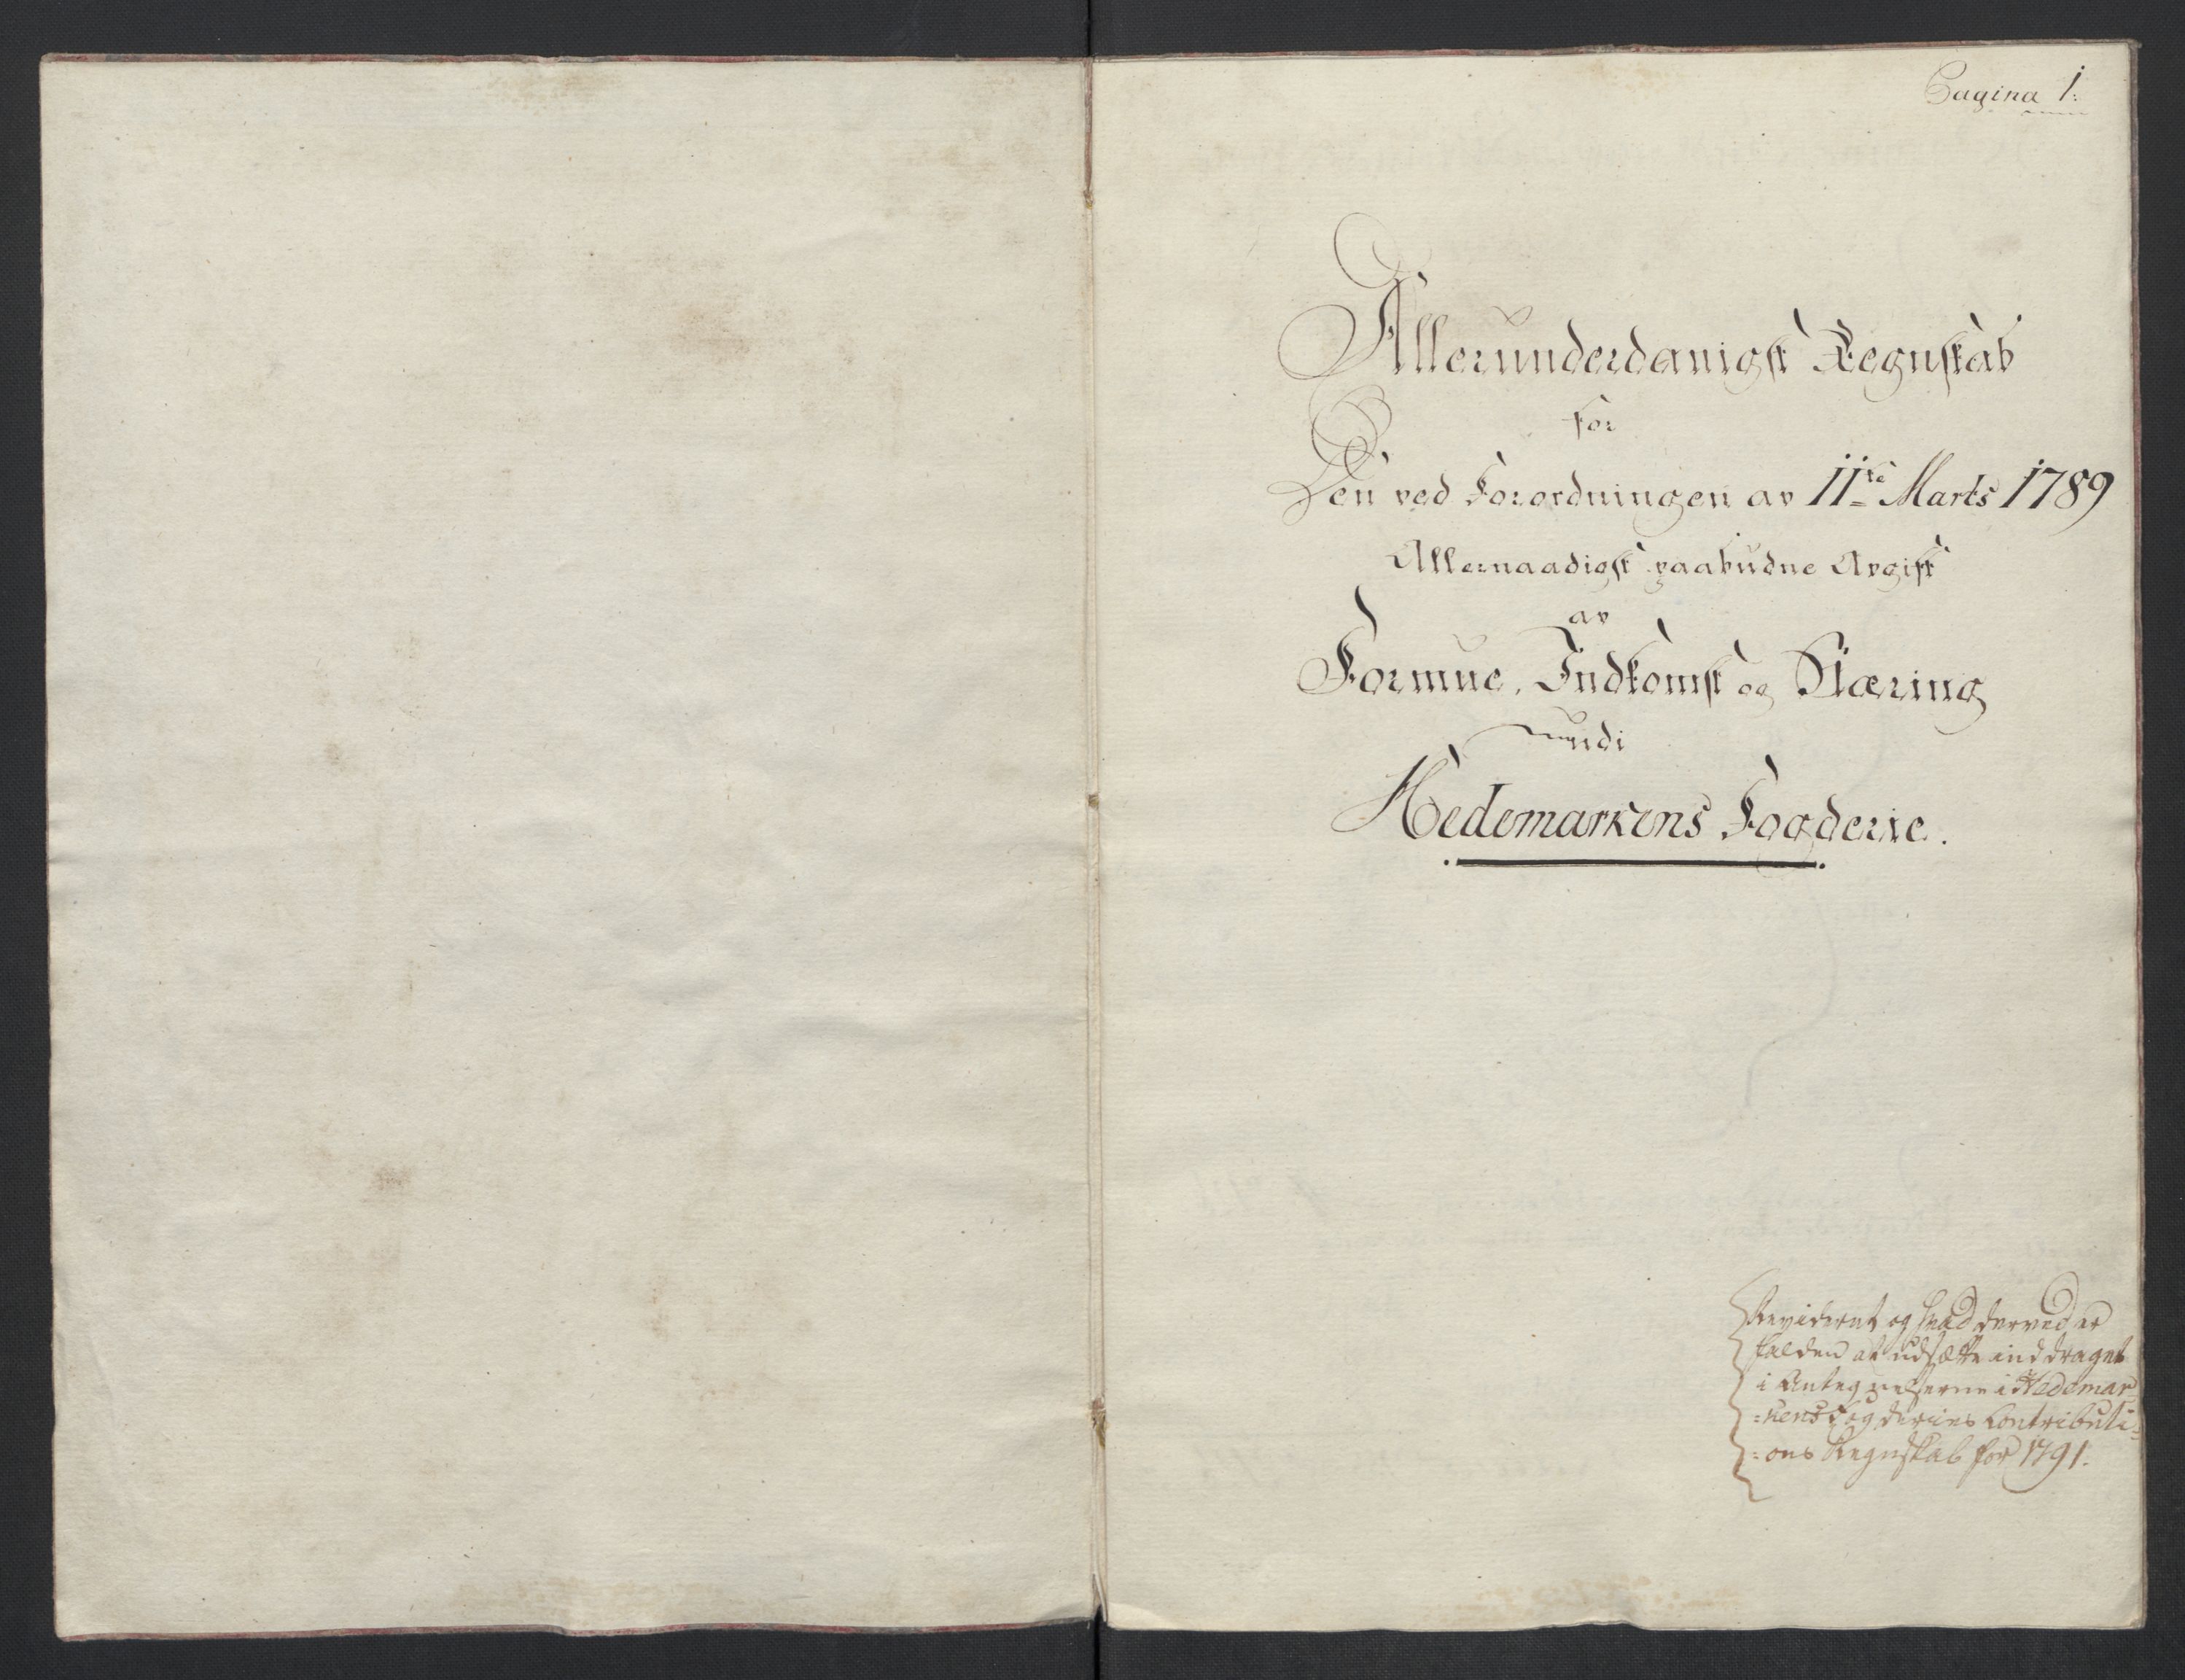 Pagina 1:
Allerunderdanigst Regnskab
for
Den ved Forordningen av 11te Marts 1789
Allernaadigst paabudne Avgift
av
Formue, Indkomst og Næring
udi
Hedemarkens Fogderie.
Revideret og hvad derved er
falden at udsætte inddraget
i Antegnelserne i Hedemar-
:kens Fogderies Contributi-
:ons Regnskab for 1791.